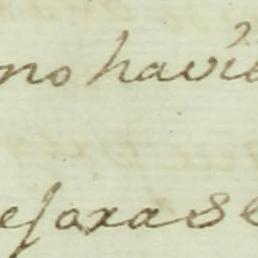 no havie
ejaxase